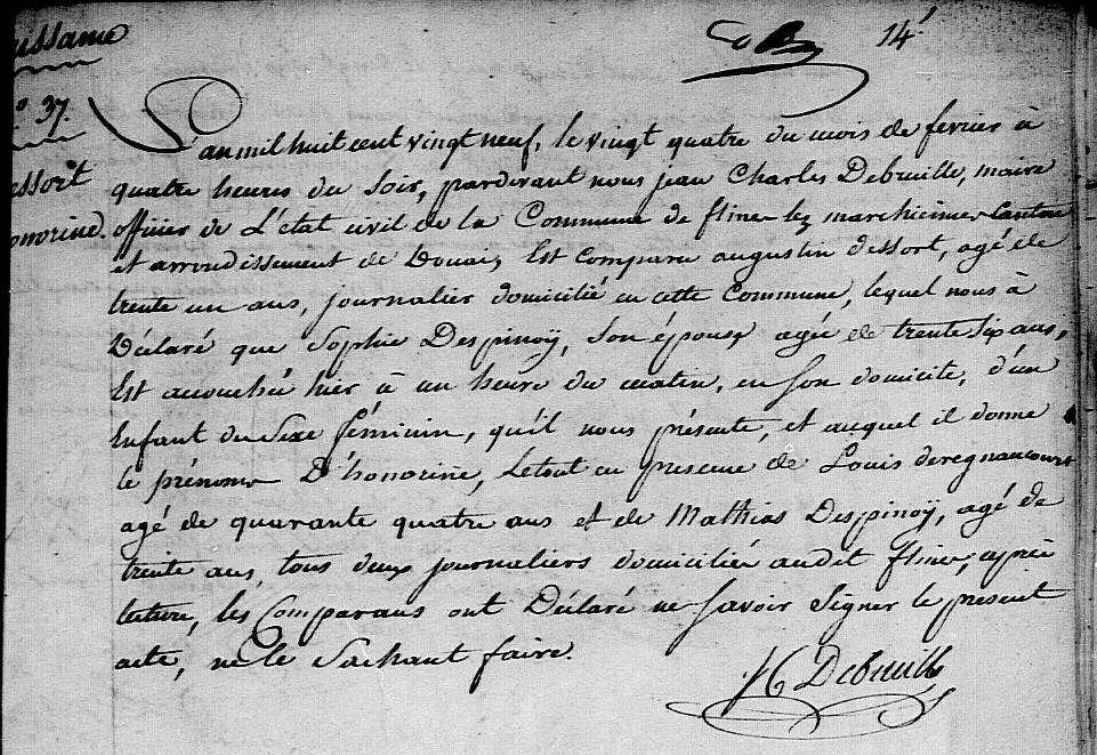 14
issance
o 37.
essort
onorine.
L'an mil huit cent vingt neuf, le vingt quatre du mois de fevrier à
quatre heures du soir, pardevant nous jean Charles Debruille, maire
officier de L'état civil de la Commune de flines lez marchiennes Canton
et arrondissement de Douai, Est Comparu augustin dessort, agé de
trente un ans, journalier domicilié en cette Commune, lequel nous à
Déclaré que Sophie Despinoÿ, Son épouse agée de trente Six ans,
Est accouchée hier à un heure du matin, en Son domicile, d'un
Enfant du Sexe féminin, qu'il nous présente, et auquel il donne
le prénom D'honorine, Le tout en presence de Louis deregnaucourt
agé de quarante quatre ans et de Mathias Despinoÿ, agé de
trente ans, tous deux journaliers domiciliés audit flines, après
lecture, les Comparans ont Déclaré ne Savoir Signer le present
acte, ne le Sachant faire.
JC Debruille